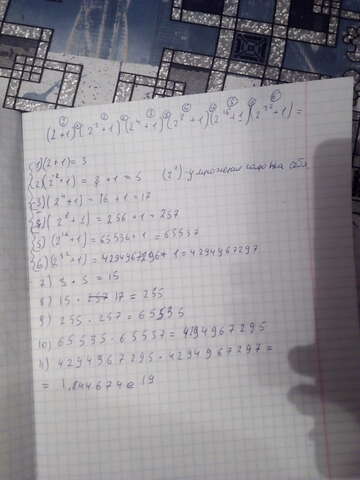 (2+1)(2²+1)(2⁴+1)(2⁸+1)(2¹⁶+1)(2³²+1)=
1) (2+1)=3
2) (2²+1)=4+1=5 (2²)-умножения само на себя
3) (2⁴+1)=16+1=17
4) (2⁸+1)=256+1=257
5) (2¹⁶+1)=65536+1=65537
6) (2³²+1)=4294967296+1=4294967297
7) 3·5=15
8) 15·17=255
9) 255·257=65535
10) 65535·65537=4294967295
11) 4294967295·4294967297=
=1,844674e19